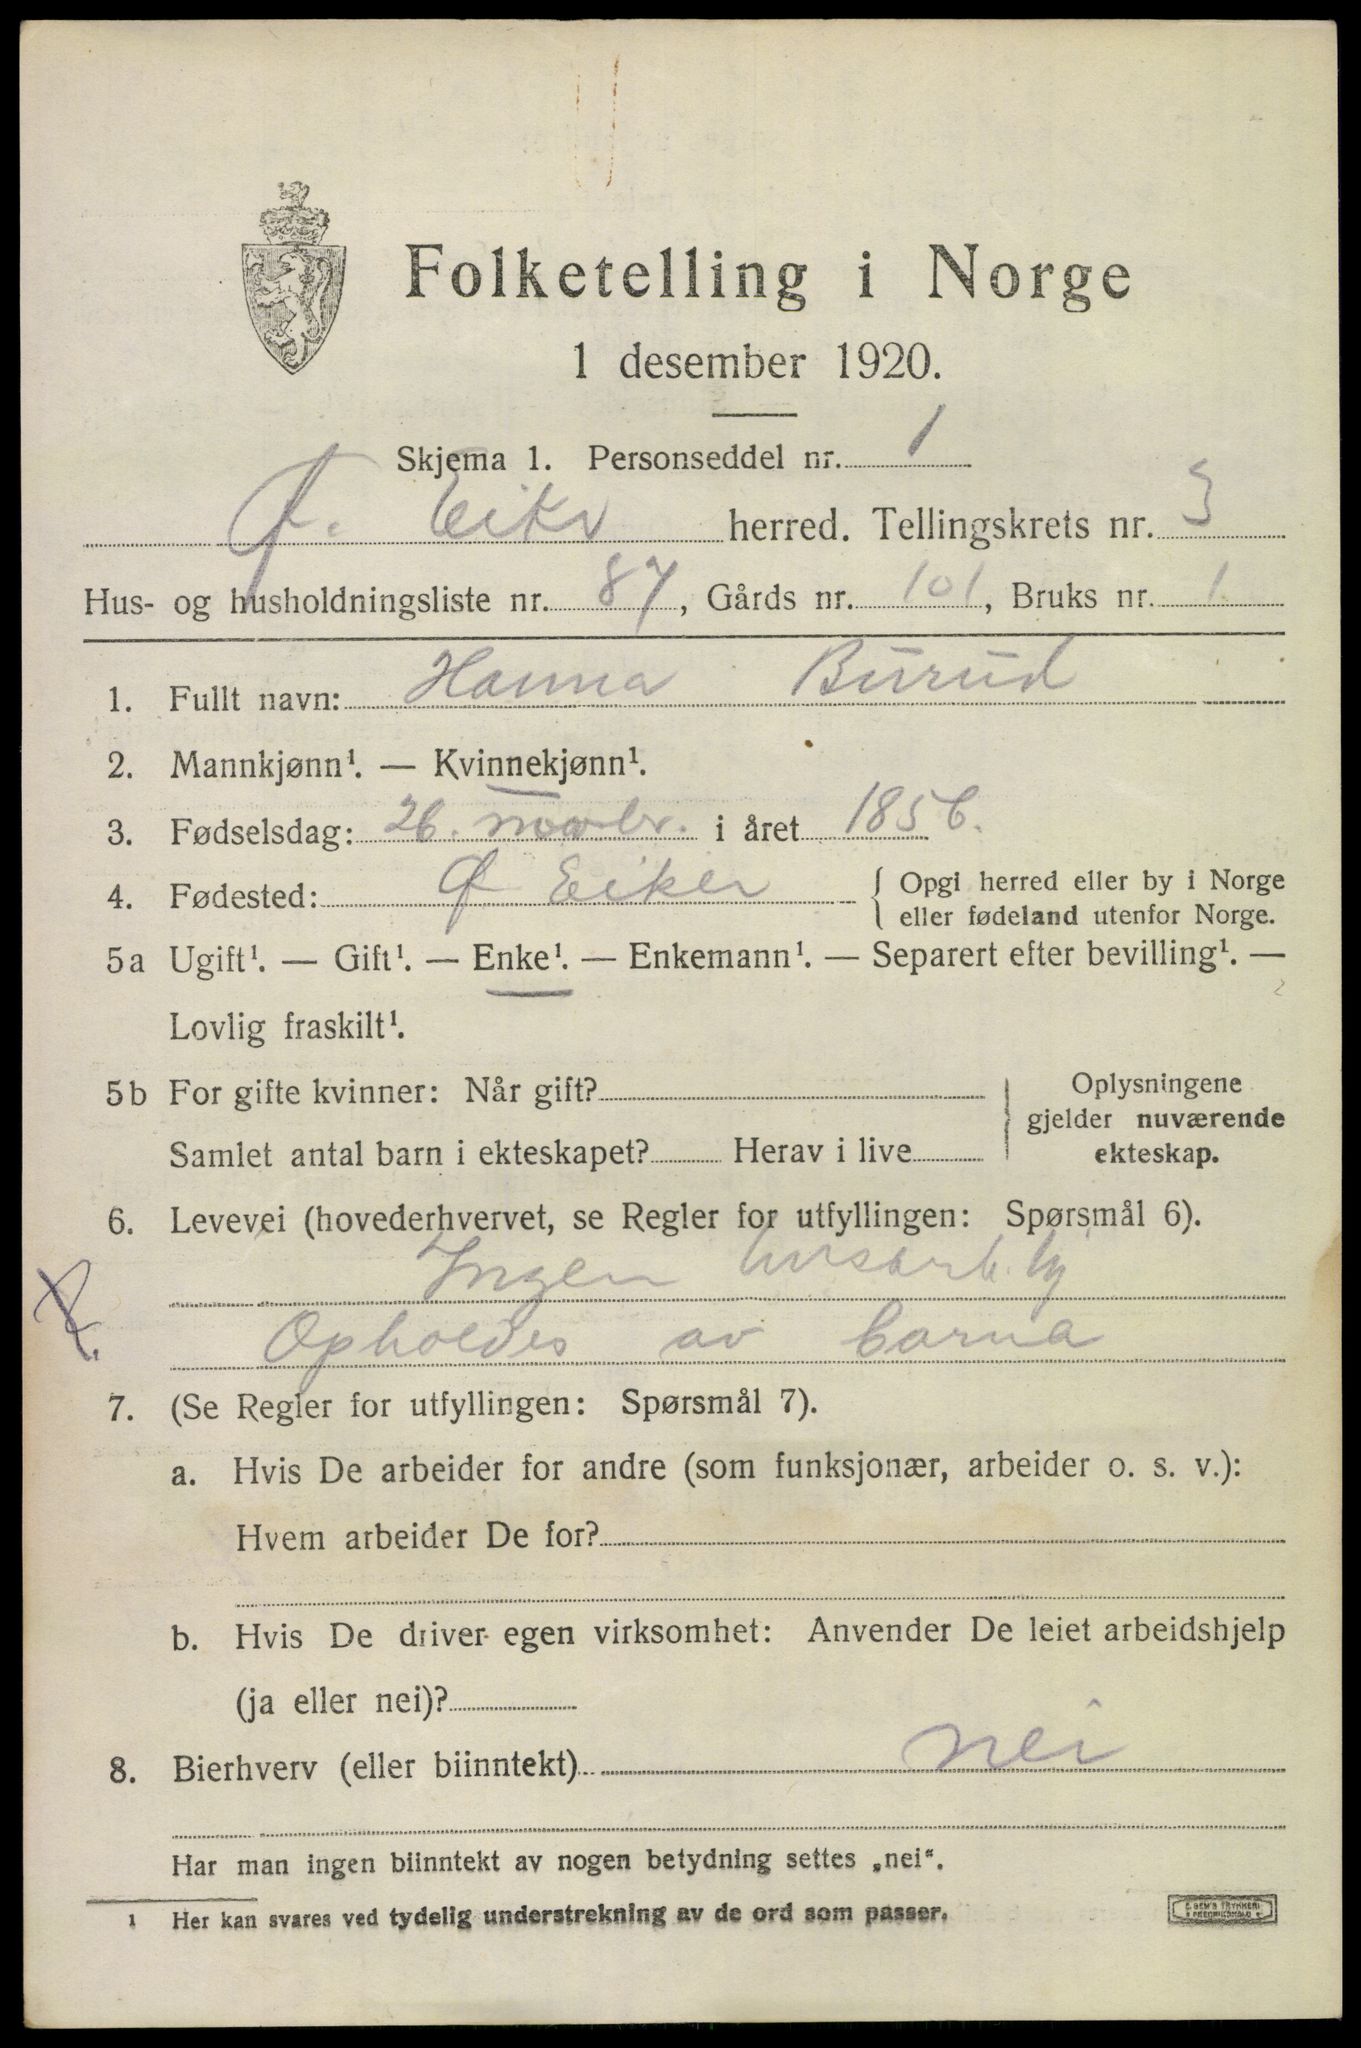 Folketelling i Norge
1 desember 1920.
Skjema 1. Personseddel nr. 1
Ø. Eiker herred. Tellingskrets nr. 3
Hus- og husholdningsliste nr. 87, Gårds nr. 101, Bruks nr. 1
1. Fullt navn: Hanna Burud
2. Mannkjønn¹. — Kvinnekjønn¹.
3. Fødselsdag: 26. novbr. i året 1856.
4. Fødested: Ø Eiker { Opgi herred eller by i Norge
eller fødeland utenfor Norge.
5a Ugift¹. — Gift¹. — Enke¹. — Enkemann¹. — Separert efter bevilling¹. —
Lovlig fraskilt¹.
5b For gifte kvinner: Når gift? Oplysningene
gjelder nuværende
Samlet antal barn i ekteskapet? Herav i live ekteskap.
6. Levevei (hovederhvervet, se Regler for utfyllingen: Spørsmål 6).
Ingen
Opholdes av barna
7. (Se Regler for utfyllingen: Spørsmål 7).
a. Hvis De arbeider for andre (som funksjonær, arbeider o. s. v.):
Hvem arbeider De for?
b. Hvis De driver egen virksomhet: Anvender De leiet arbeidshjelp
(ja eller nei)?
8. Bierhverv (eller biinntekt) nei
Har man ingen biinntekt av nogen betydning settes „nei“.
1 Her kan svares ved tydelig understrekning av de ord som passer.